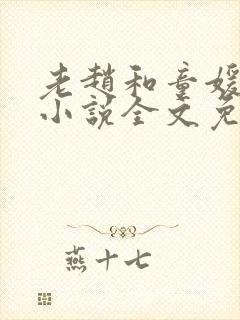 老赵和童媛
小说全文免
燕十七